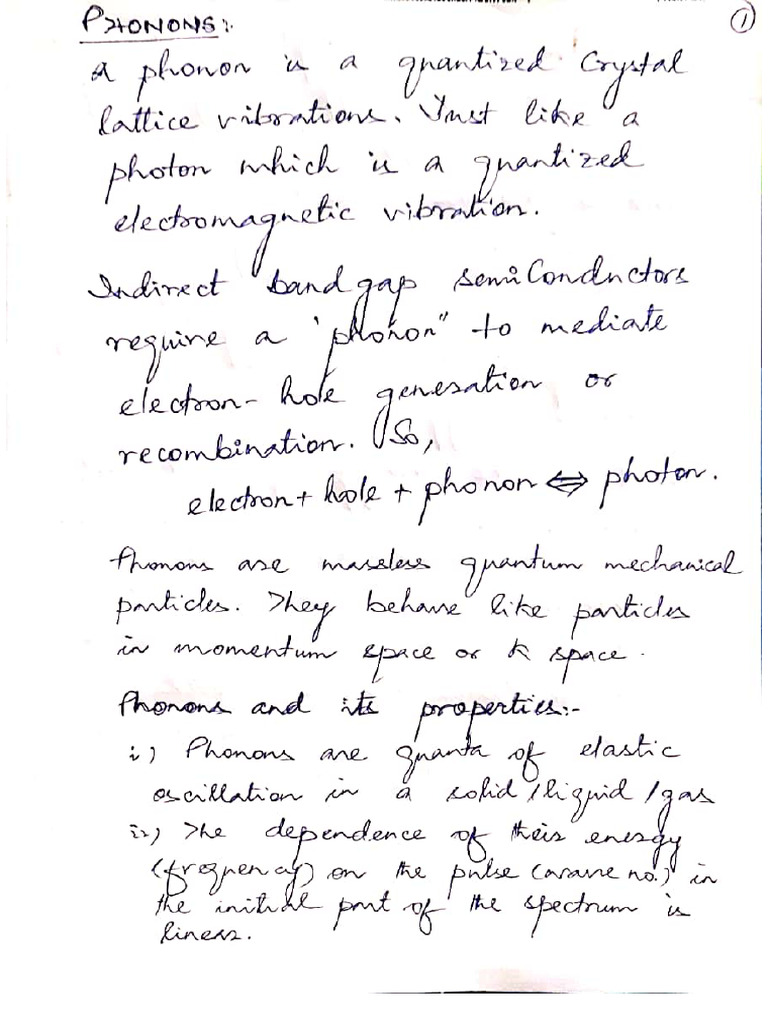 PHONONS:-
①
a phonon is a quantized Crystal
lattice vibrations. Just like a
photon which is a quantized
electromagnetic vibration.
Indirect band gap semiConductors
require a 'phonon" to mediate
electron- hole generation or
recombination. So,
electron + hole + phonon ⇔ photon.
Phonons are massless quantum mechanical
particles. They behave like particles
in momentum space or K space.
Phonons and its properties:-
i) Phonons are quanta of elastic
oscillation in a solid/liquid/gas
ii) The dependence of their energy
(frequency) on the pulse (wave no.) in
the initial part of the spectrum is
linear.